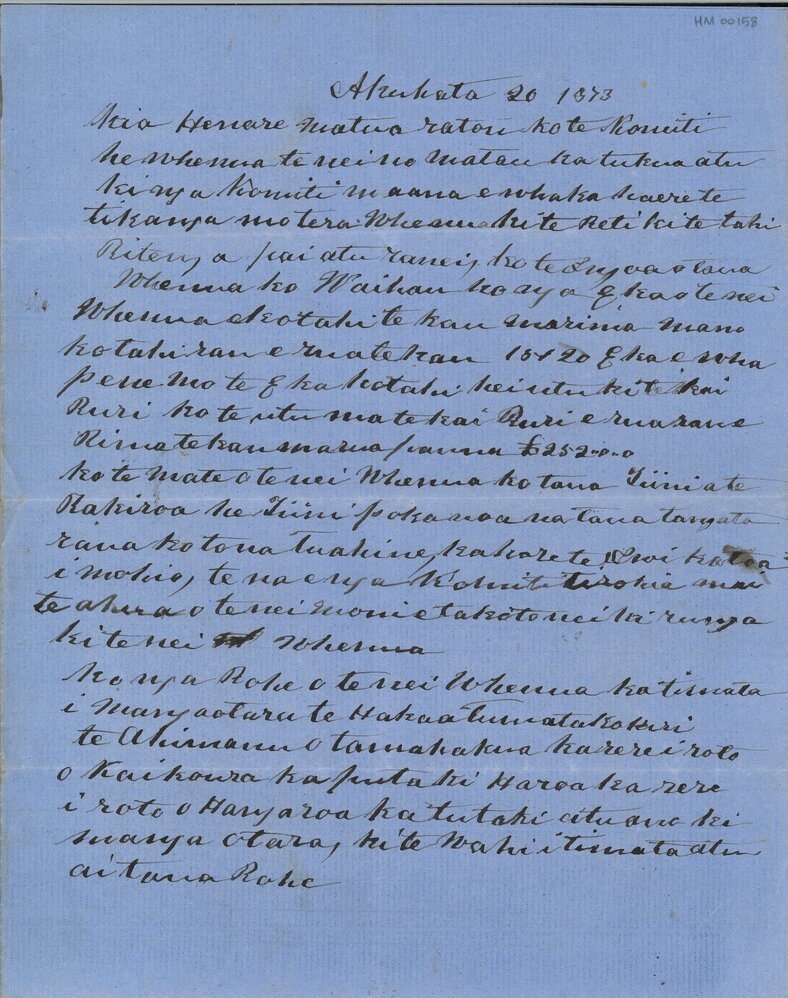 HM 00158
Akuhata 20 1873
kia Henare matua ratou ko te Komiti
he whenua te nei no matau ka tukua atu
ki nga Komiti maana e whaka haere te
tikanga mo tera Whenua ki te Reti ki te tahi
Ritenga pai atu ranei, ko te Ingoa o taua
Whenua ko Waihau ko nga Eka o te nei
Whenua e kotahi te kau marima mano
kotahi rau e rua te kau 15120 Eka e wha
pene mo te Eka kotahi hei utu ki te kai
Ruri ko te utu ma te kai Ruri e rua rau e
Rima te kau marua pauna £252-0-0
ko te mate o te nei Whenua ko taua Tiini a te
Rakiroa he Tiini poka noa na taua tangata
raua ko tona tuahine, kahore te Iwi katoa
i mohio, te na e nga Komiti tirohia mai
te ahua o te nei moni e takoto nei ki runga
ki te nei Whenua
ko nga Rohe o te nei Whenua ka timata
i Mangaotara te Hakaatumatakokiri
te Ahimanu o tamahakua ka rere i roto
o Kaikoura ka puta ki Haroa ka rere
i roto o Hangaroa ka tutaki atu ano ki
manga otara, ki te Wahi i timata atu
ai taua Rohe